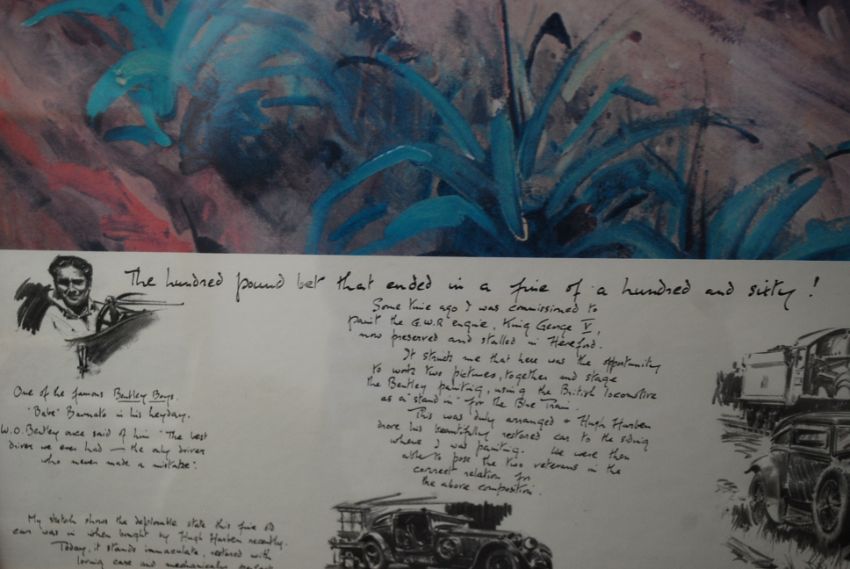 The hundred pound bet that ended in a fine of a hundred and sixty!
Some time ago I was commissioned to
paint the G.W.R engine, King George V,
now preserved and stalled in Hereford.
It struck me that here was the opportunity
to work two pictures, together and stage
the Bentley painting, using the British locomotive
as a "stand in" for the Blue Train.
This was duly arranged & Hugh Harben
drove his beautifully restored car to the siding
where I was painting. We were then
able to pose the two veterans in the
correct relation for
the above composition.
One of the famous Bentley Boys.
'Babe' Barnato in his heyday.
W.O. Bentley once said of him "The best
driver we ever had — the only driver
who never made a mistake".
My sketch shows the deplorable state this fine old
car was in when bought by Hugh Harben recently.
Today, it stands immaculate, restored with
loving care and mechanically perfect